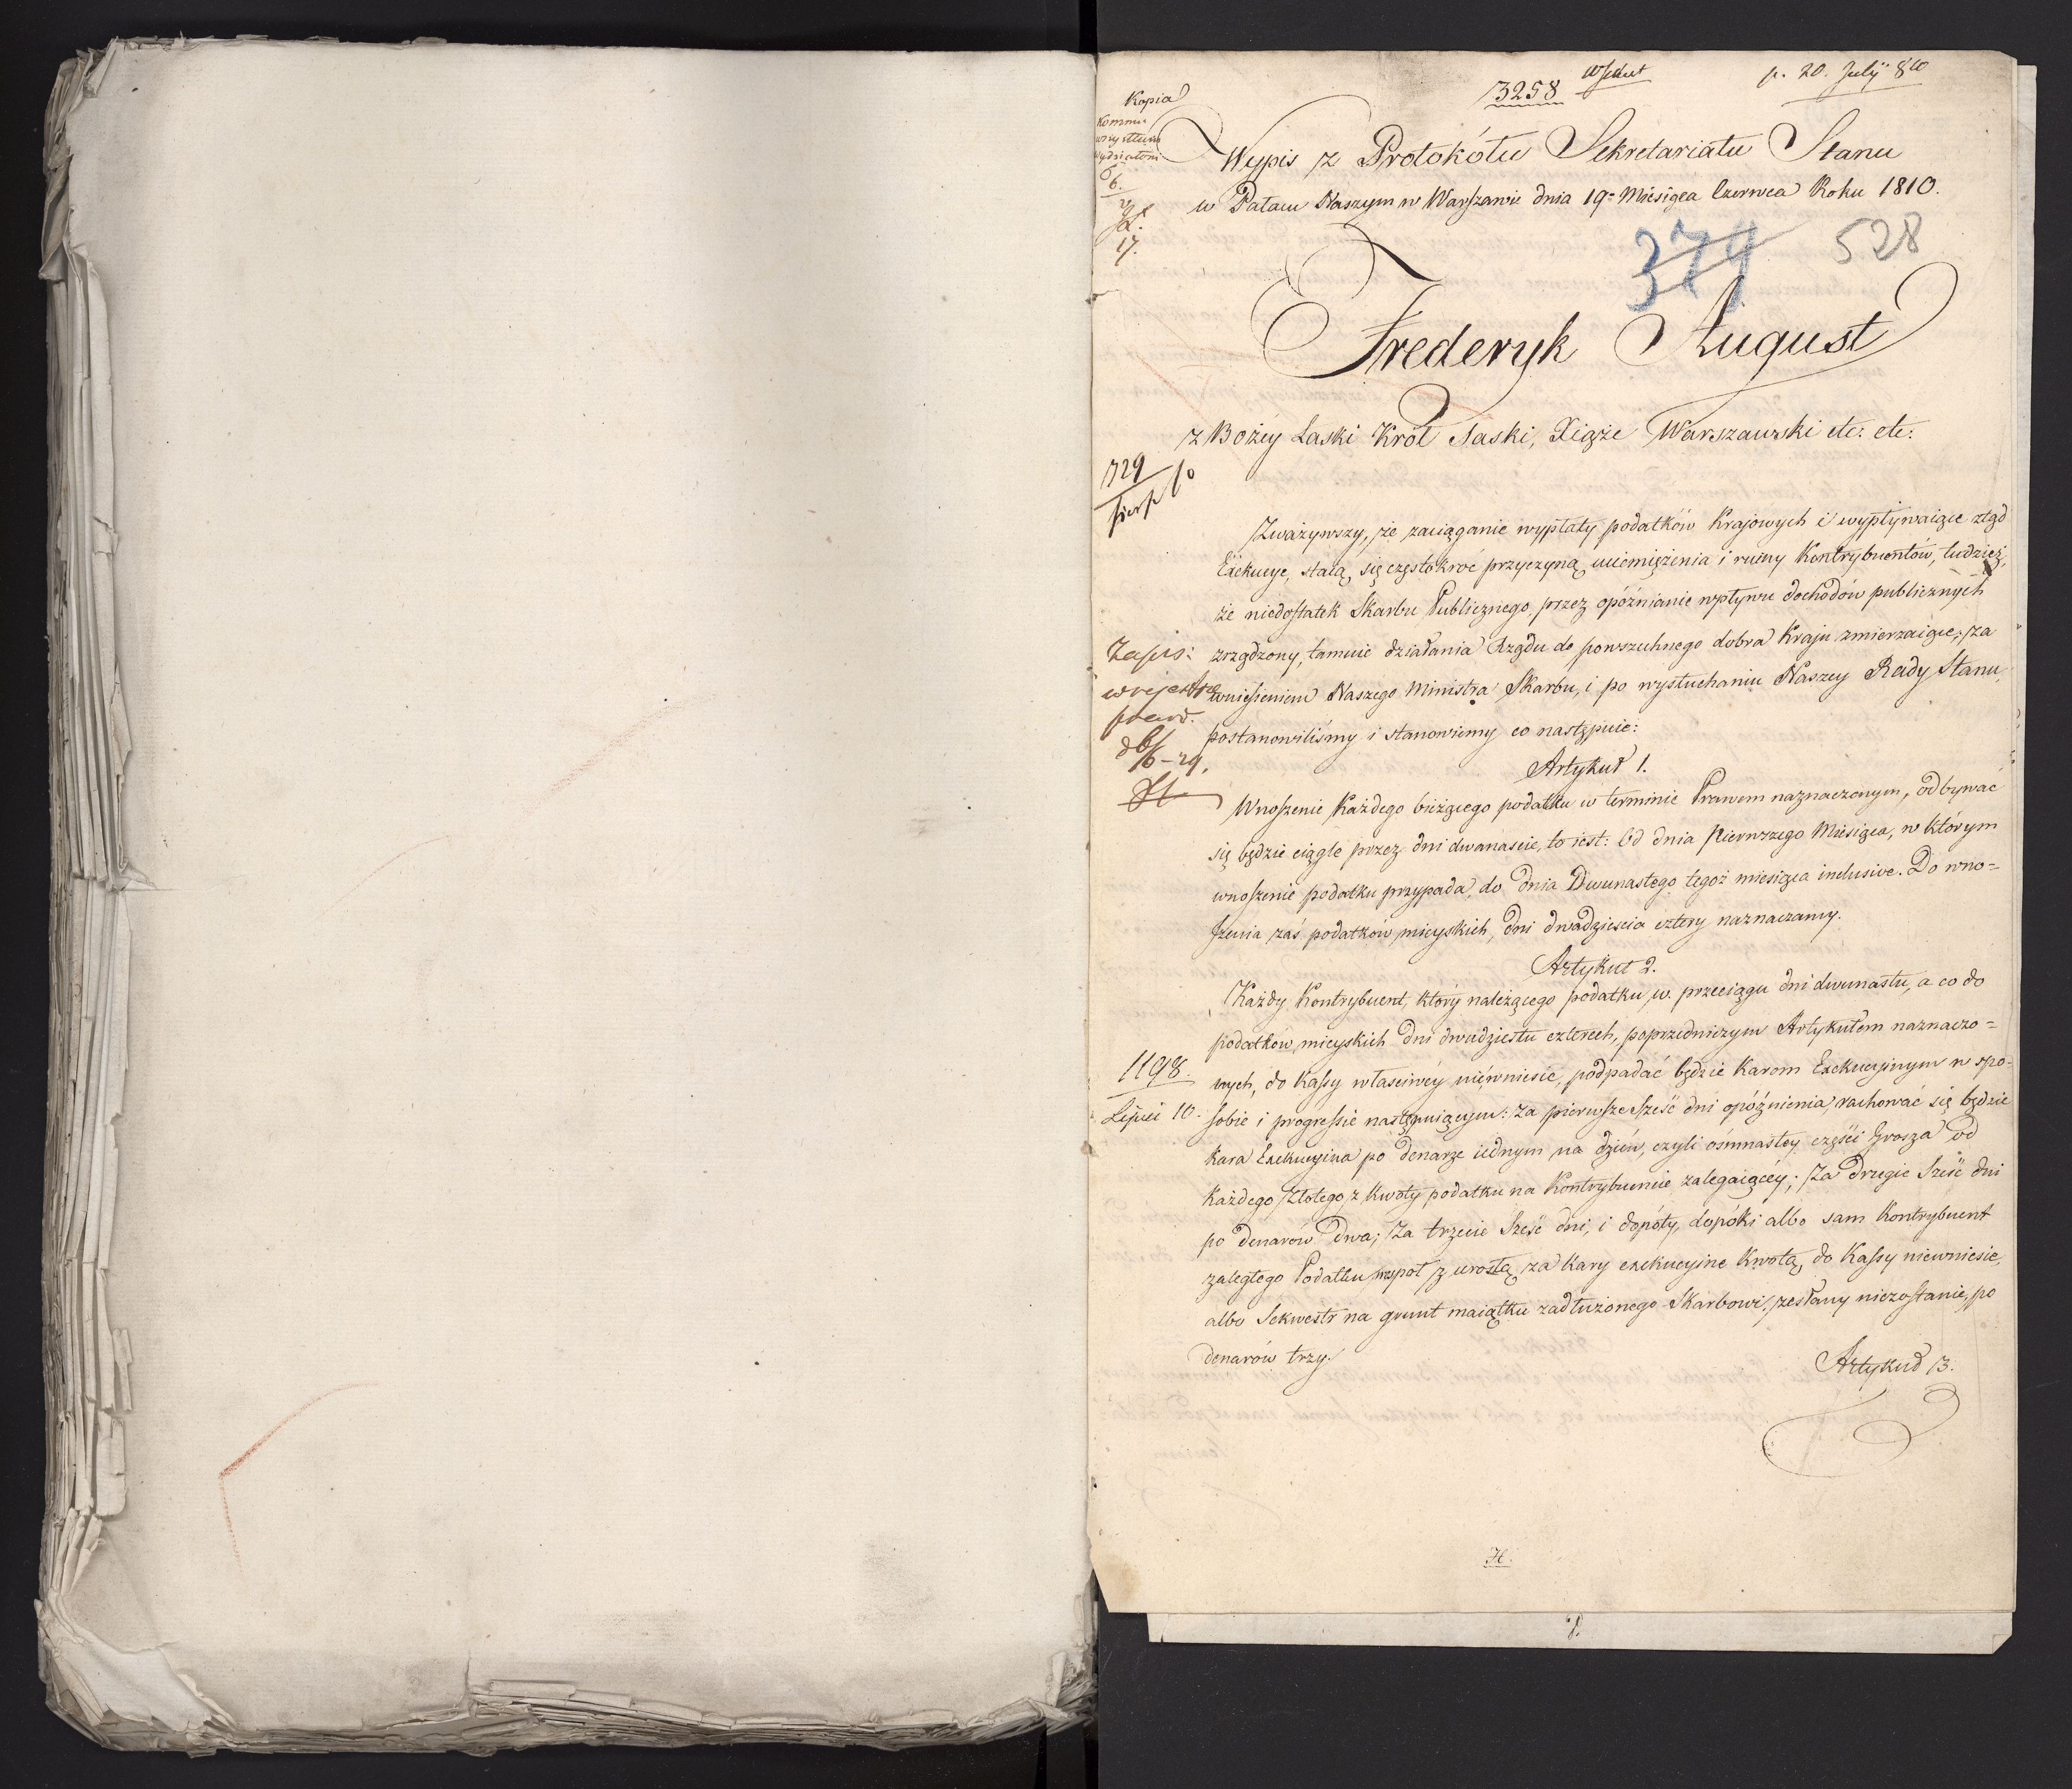 3258
p. 20. July 810
Kopia
Wypis z Protokółu Sekretariatu Stanu
w Pałacu Naszym w Warszawie dnia 19º Miesiąca Czerwca Roku 1810.
17.
379 528
Frederyk August
z Bożéy Łaski Król Saski, Xiąże Warszawski etc: etc:
729
Zważywszy, że zaciąganie wypłaty podatków Krajowych i wypływaiące ztąd
Exekucye, staią się częstokroć przyczyną uciemiężenia i ruiny Kontrybuentów, tudzież,
że niedostatek Skarbu Publicznego, przez opóźnianie wpływu dochodów publicznych
zrządzony, tamuie działania Rządu do powszechnego dobra Kraju zmierzaiące; za
wniesieniem Naszego Ministra Skarbu, i po wysłuchaniu Naszey Rady Stanu,
postanowiliśmy i stanowiemy co następuie:
Zapis:
Artykuł 1.
Wnoszenie Każdego bieżącego podatku w terminie Prawem naznaczonym, odbywać
się będzie ciągle przez dni dwanaście, to iest: Od dnia Pierwszego Miesiąca, w którym
wnoszenie podatku przypada, do dnia Dwunastego tegoż miesiąca inclusive. Do wno=
szenia zaś podatków mieyskich, dni dwadzieścia cztery naznaczamy.
Artykuł 2.
Każdy Kontrybuent, który należącego podatku w przeciągu dni dwunastu, a co do
podatków mieyskich dni dwudziestu czterech, poprzedniczym Artykułem naznaczo=
nych, do Kassy właściwéy niewniesie, podpadać będzie Karom Exekucyinym w spo=
sobie i progressie następuiącym: Za pierwsze sześć dni opóźnienia, rachować się będzie
Kara Exekucyina po denarze iednym na dzień, czyli ośmnastey części Grosza od
Każdego Złotego, z Kwoty podatku na Kontrybuencie zalegaiącéy; Za drugie sześć dni
po denarów dwa; Za trzecie sześć dni, i dopóty, dopóki albo sam Kontrybuent
zaległego Podatku wspoł z urosłą za Kary exekucyine Kwotą, do Kassy niewniesie,
albo Sekwestr na grunt maiątku zadłużonego Skarbowi, zesłany niezostanie, po
denarów trzy.
1198.
Lipci 10.
Artykuł 3.